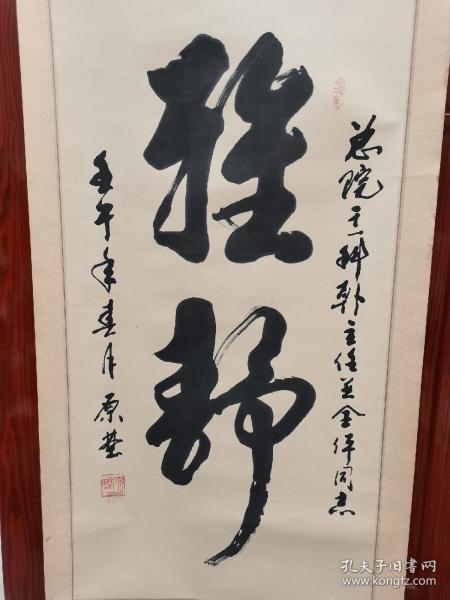 雅静
总院王科韩主任并全体同志
壬午年春月原
孔夫子旧书网
www.kongfz.com